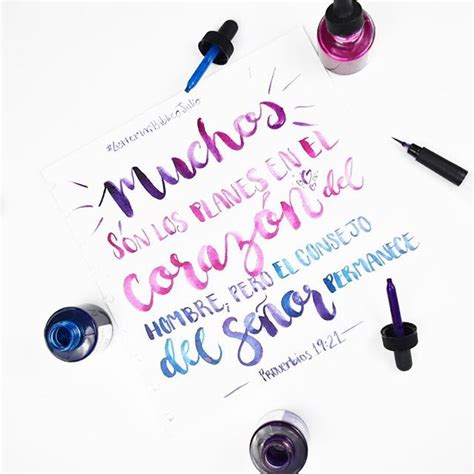 #LetteringBíblicoJulio
Muchos
SON LOS PLANES EN EL
corazón del
HOMBRE, PERO EL CONSEJO
del Señor PERMANECE
Proverbios 19:21